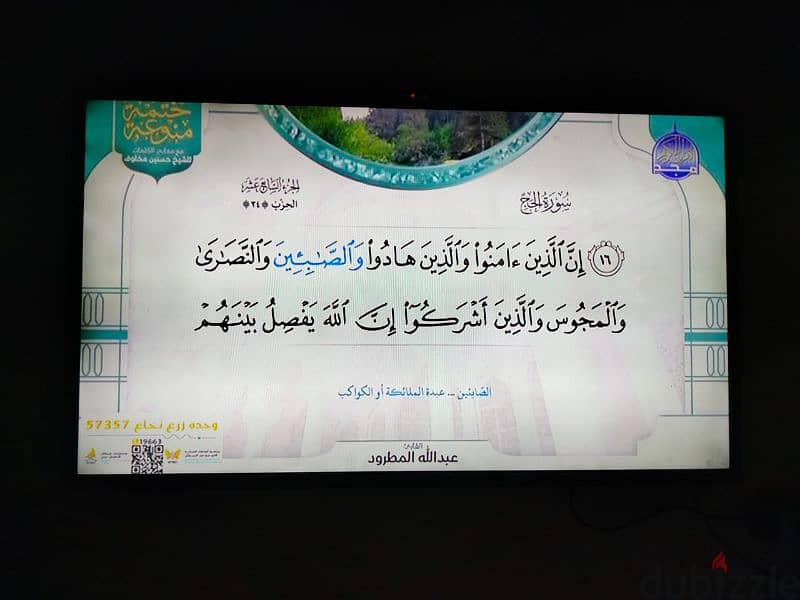 ختمة
منوعة
مع معاني الكلمات
للشيخ حسنين مخلوف
مجد
الجزء السابع عشر
الحزب ۞ ٣٤ ۞
سُورَةُ الحَجّ
١٦ إِنَّ ٱلَّذِينَ ءَامَنُواْ وَٱلَّذِينَ هَادُواْ وَٱلصَّـٰبِـِٔينَ وَٱلنَّصَٰرَىٰ
وَٱلۡمَجُوسَ وَٱلَّذِينَ أَشۡرَكُوٓاْ إِنَّ ٱللَّهَ يَفۡصِلُ بَيۡنَهُمۡ
الصّابئين ... عبدة الملائكة أو الكواكب
وحدة زرع نخاع 57357
19663
القارئ:
عبدالله المطرود
dubizzle